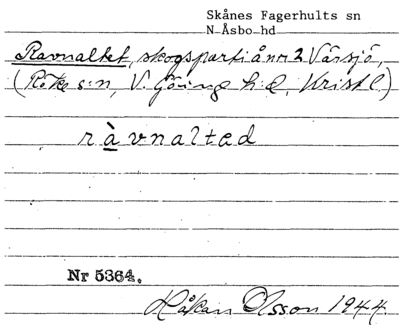 Skånes Fagerhults sn
N Åsbo hd
Ravnaltet, skogsparti å nr 2 Vårsjö,
(Röke s:n, V. Göinge h:d, Kristl.)
ràvnaltad
Nr 5364.
Håkan Olsson 1944.